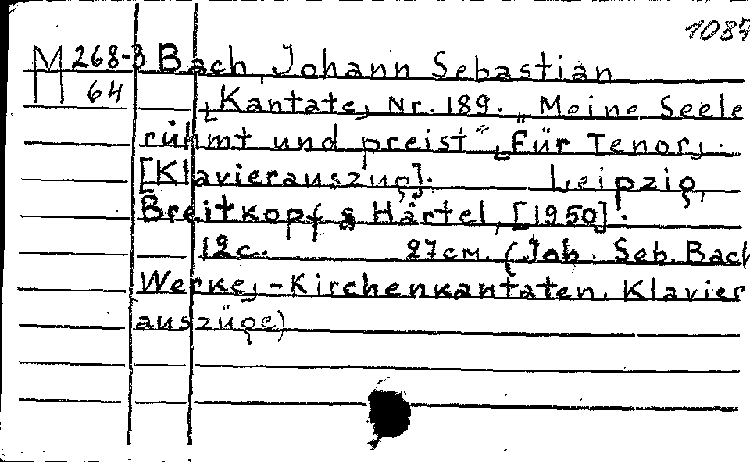 1087
M 268-3 Bach, Johann Sebastian
64 [Kantate, Nr. 189. „Meine Seele
rühmt und preist“, [Für Tenor].
[Klavierauszug]. Leipzig,
Breitkopf & Härtel, [1950].
12 c. 27 см. (Joh. Seb. Bach
Werke, - Kirchenkantaten. Klavier
auszüge)